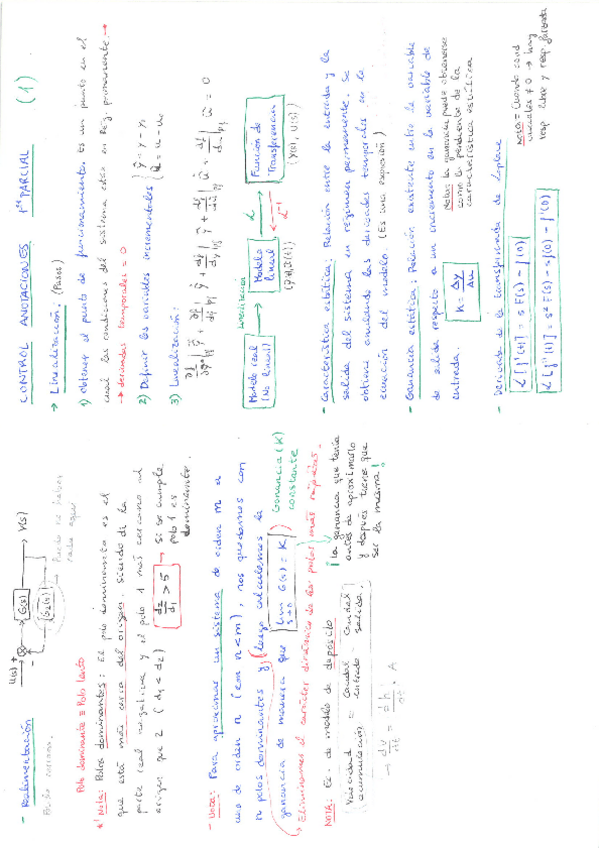 CONTROL ANOTACIONES 1er PARCIAL (1)
→ Linealización: (Pasos)
1) Obtener el punto de funcionamiento. Es un punto en el
cual las condiciones del sistema están en Reg. permanente. →
→ derivadas temporales = 0
2) Definir las variables incrementales { ŷ = y - y₀
û = u - u₀
3) Linealización:
Modelo real
(No lineal)
Linealización
Modelo
lineal
(y(t), u(t))
L
L⁻¹
Función de
Transferencia
(Y(s), U(s))
- Característica estática: Relación entre la entrada y la
salida del sistema en régimen permanente. Se
obtiene anulando las derivadas temporales en la
ecuación del modelo (Es una expresión)
- Ganancia estática: Relación existente entre la variable
de salida respecto a un incremento en la variable de
entrada.
K = Δy/Δu
Nota: la ganancia puede obtenerse
como la pendiente de la
característica estática
- Derivada de la transformada de Laplace
L[f'(t)] = s F(s) - f(0)
L[f''(t)] = s² F(s) - s f(0) - f'(0)
nota = Cuando cond
iniciales ≠ 0 → hay
resp libre y resp. forzada
- Realimentación
U(s) + G(s) Y(s)
G₂(s)
Puede no haber
nada aquí
Polo dominante = Polo lento
* Nota: Polos dominantes: El polo dominante es el
que está más cerca del origen. Siendo d₁ la
parte real negativa y el polo 1 más cercano al
origen que 2 (d₁ < d₂)
d₂/d₁ > 5 → si se cumple
polo 1 es
dominante.
- Nota: Para aproximar un sistema de orden m a
uno de orden n (con n<m), nos quedamos con
n polos dominantes y (luego calculamos la
ganancia de manera que lim s→0 G(s) = K) Ganancia (K)
constante
→ Eliminamos el carácter dinámico de los polos más rápidos -
¡la ganancia que tenía
antes de aproximarlo
y después tiene que
ser la misma!
NOTA: Ec. de modelo de depósito
Velocidad acumulación = caudal entrada - caudal salida.
→ dV/dt = dh/dt · A